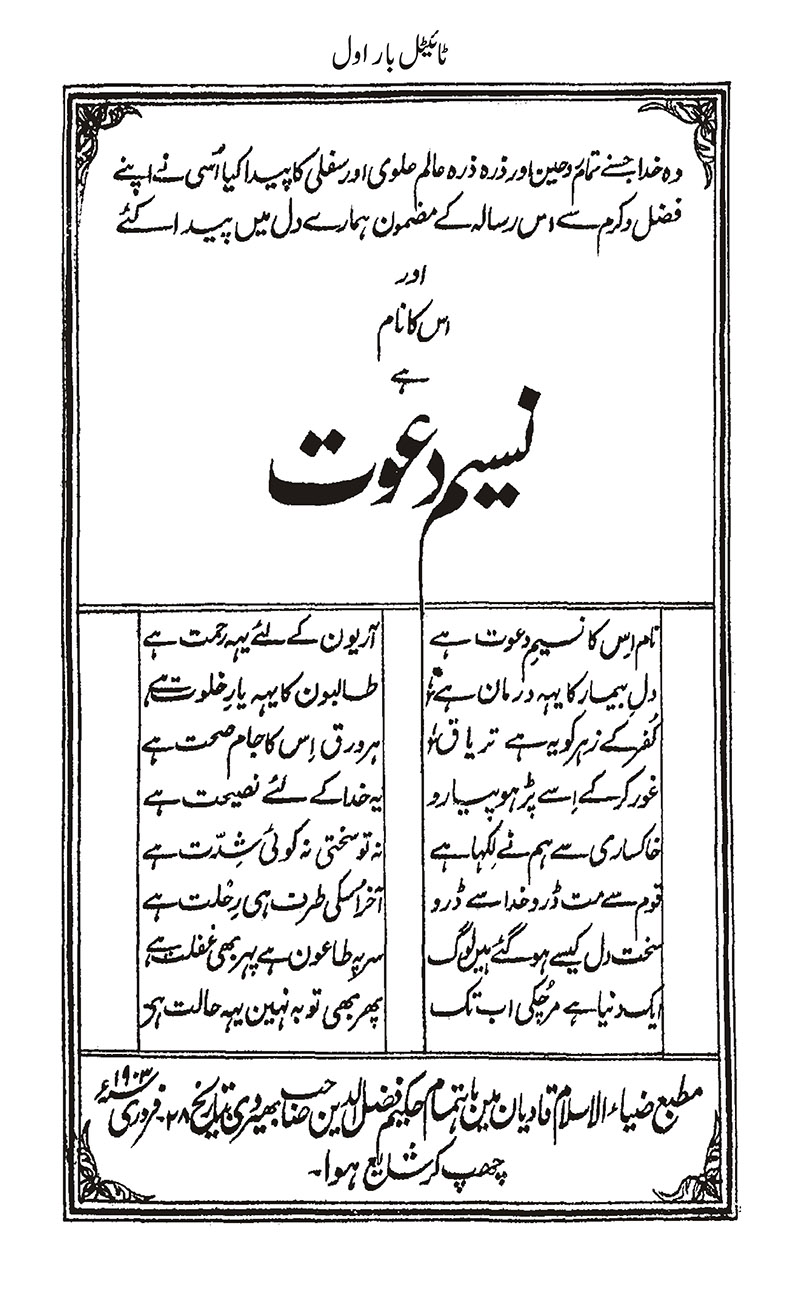 ٹائیٹل بار اول
وہ خدا جسنے تمام روحین اور ذرہ ذرہ عالم علوی اور سفلی کا پیدا کیا اُسی نے اپنے
فضل و کرم سے اس رسالہ کے مضمون ہمارے دل میں پیدا کئے
اور
اس کا نام
ہے
نسیم دعوت
نام اِس کا نسیمِ دعوت ہے آریون کے لئے یہہ رحمت ہے
دلِ بیمار کا یہہ درمان ہے طالبون کا یہہ یارِ خلوت ہے
کُفر کے زہر کو یہ ہے تریاق ہر ورق اِس کا جام صحت ہے
غور کر کے اِسے پڑہو پیارو یہ خدا کے لئے نصیحت ہے
خاکساری سے ہم نے لِکہا ہے نہ تو سختی نہ کوئی شِدّت ہے
قوم سے مت ڈرو خدا سے ڈرو آخر اُسکی طرف ہی رِحْلت ہے
سخت دل کیسے ہو گئے ہیں لوگ سر پہ طاعون ہے پہر بھی غفلت ہے
ایک دنیا ہے مر چُکی اب تک پھر بھی توبہ نہین یہہ حالت ہے
مطبع ضیاء الاسلام قادیان مین باہتمام حکیم فضل الدین صاحب بھیروی بتاریخ ۲۸۔ فروری ۱۹۰۳ سنہء
چھپ کر شایع ہوا۔